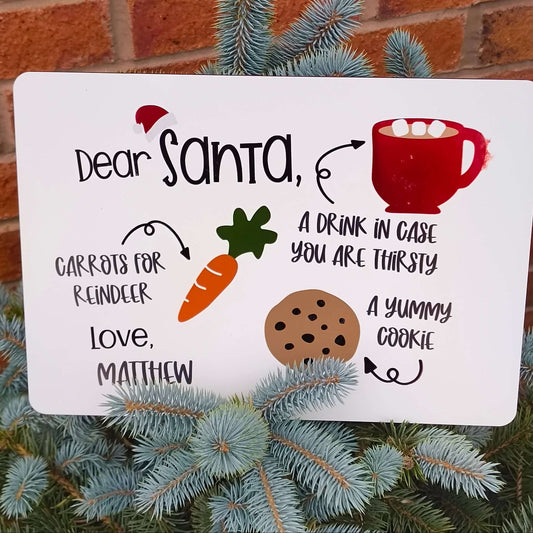 Dear Santa,
A DRINK IN CASE
YOU ARE THIRSTY
CARROTS FOR
REINDEER
A YUMMY
COOKIE
Love,
MATTHEW